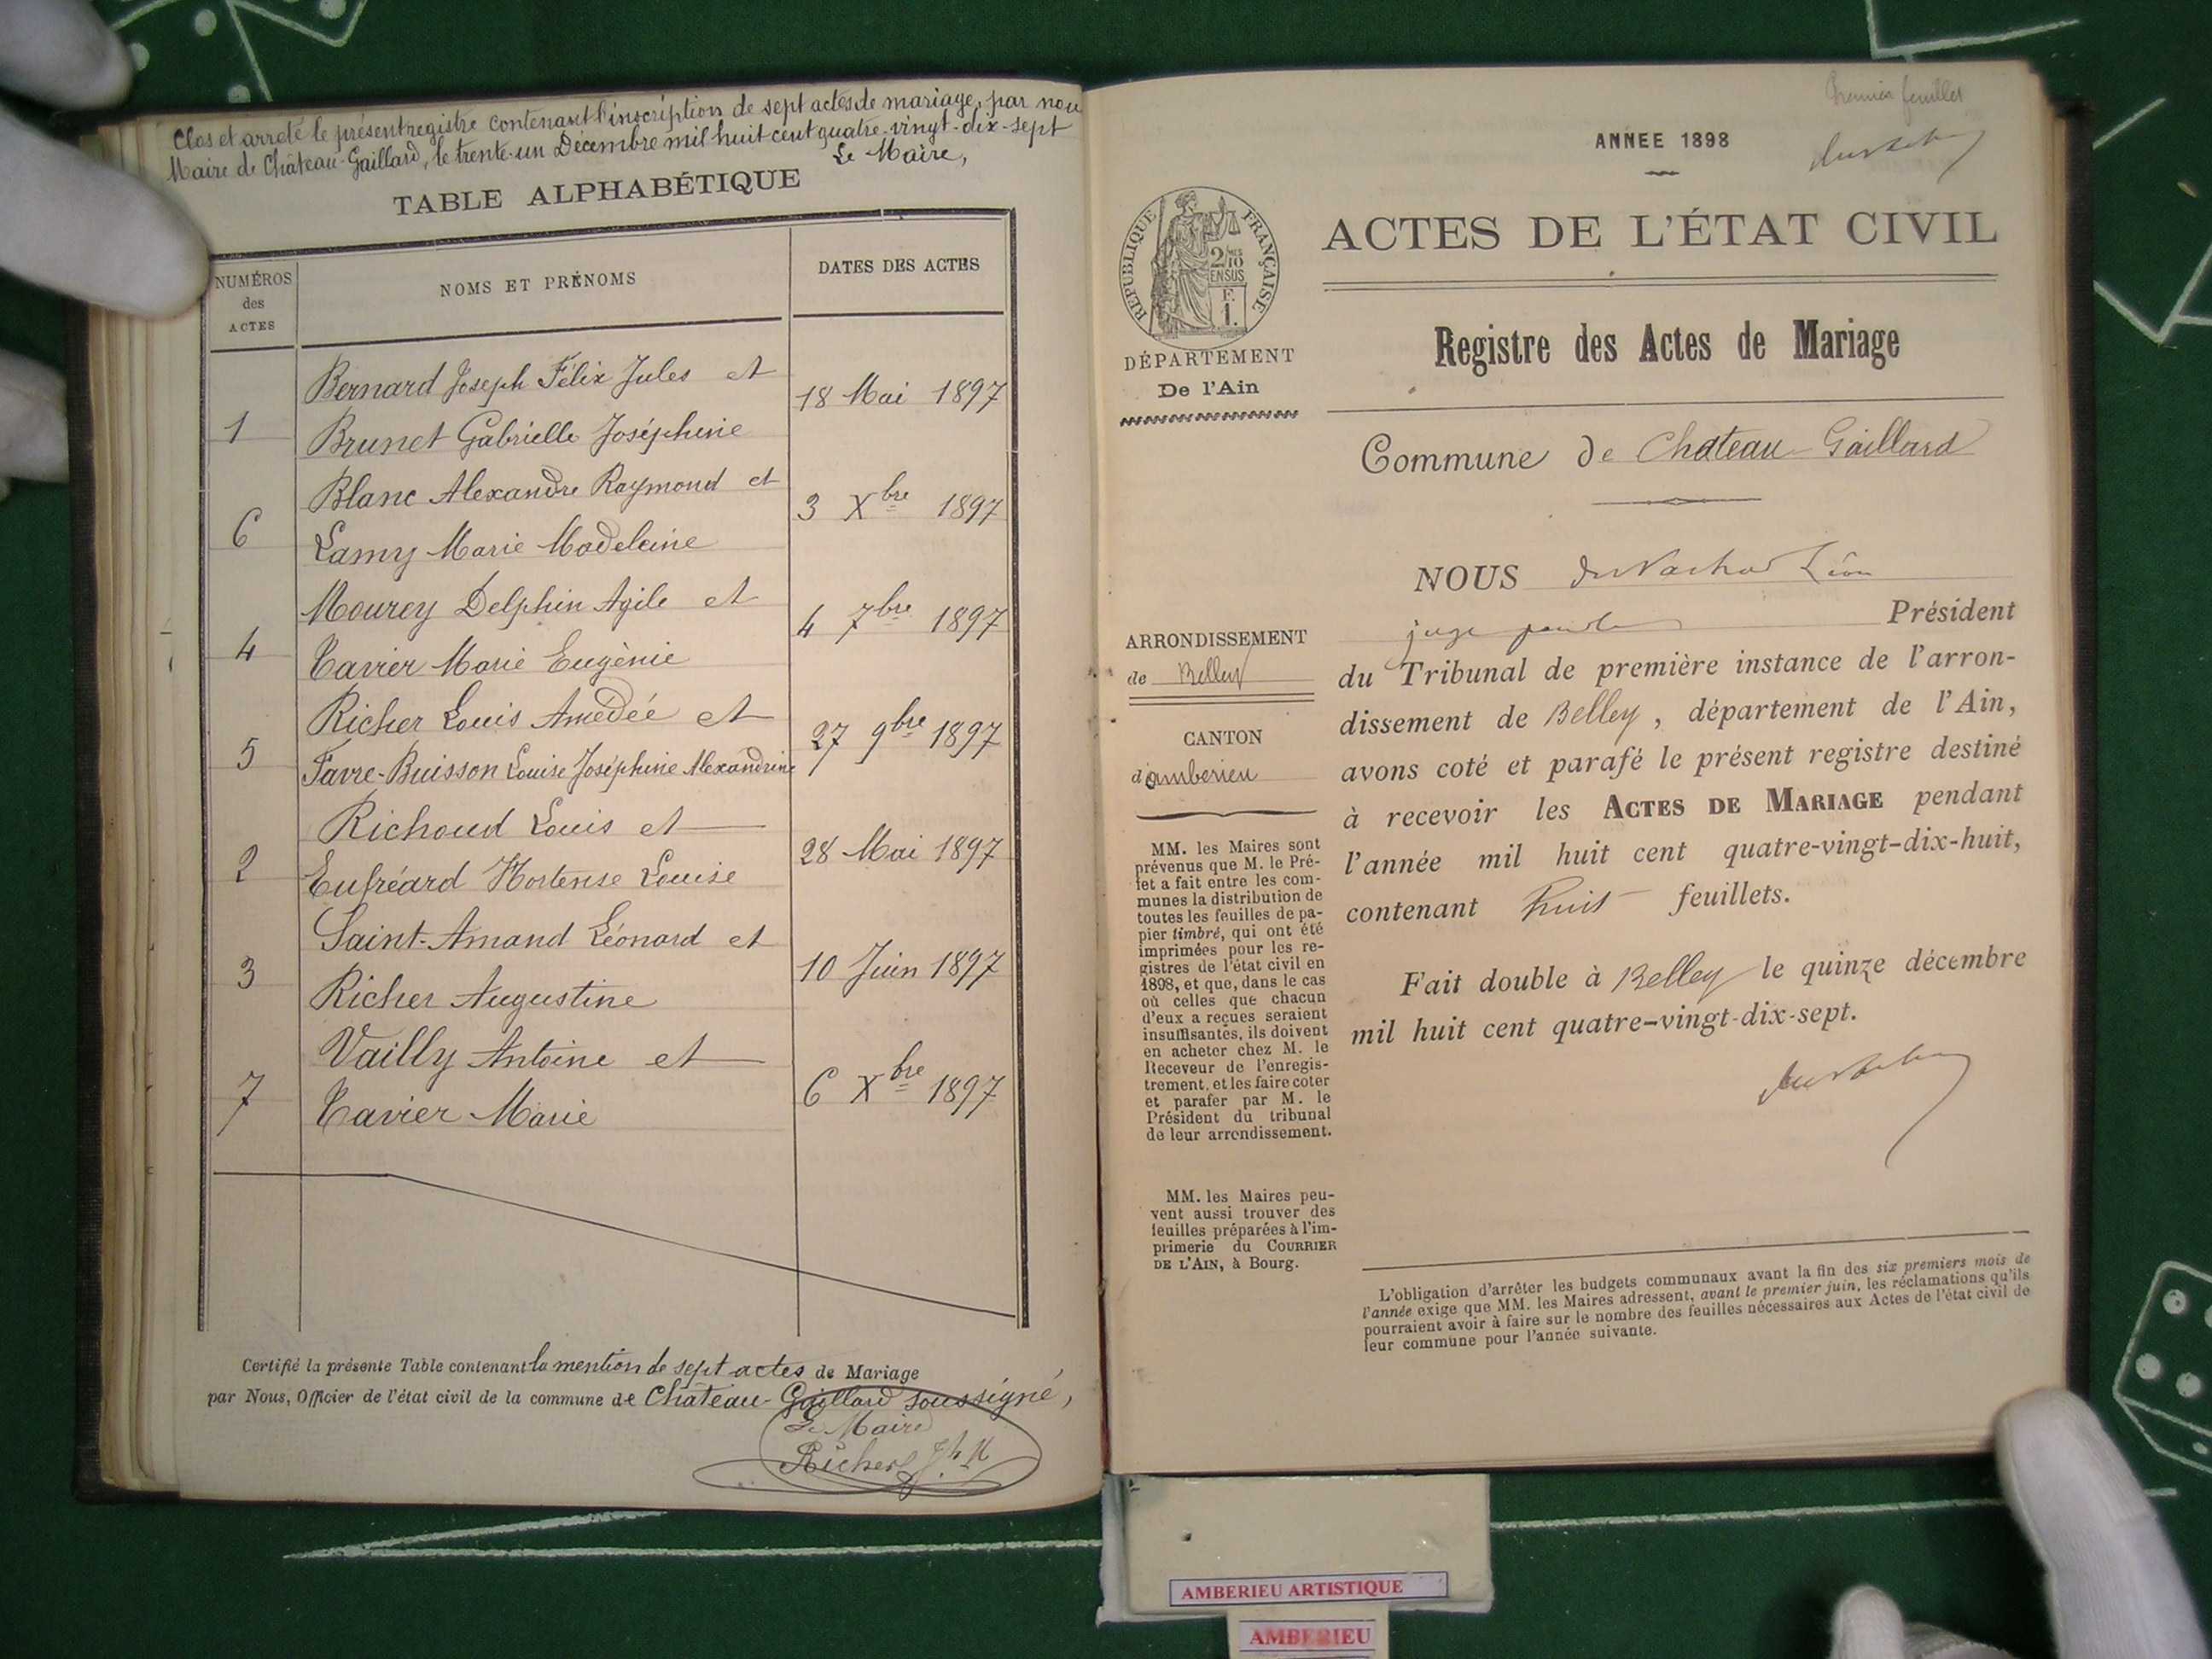 Clos et arrêté le présent registre contenant l'inscription de sept actes de mariage, par nou
Maire de Château-Gaillard, le trente-un Décembre mil huit cent quatre-vingt-dix-sept
Le Maire,
TABLE ALPHABÉTIQUE
NUMÉROS
des
ACTES
NOMS ET PRÉNOMS
DATES DES ACTES
Bernard Joseph Félix Jules et
1
Brunet Gabrielle Joséphine
18 Mai 1897
Blanc Alexandre Raymond et
6
Lamy Marie Madeleine
3 Xbre 1897
Mourey Delphin Agile et
4
Tavier Marie Eugènie
4 7bre 1897
Richer Louis Amédéé et
5
Favre-Buisson Louise Joséphine Alexandrine
27 9bre 1897
Richoud Louis et
2
Eufréard Hortense Louise
28 Mai 1897
Saint-Amand Léonard et
3
Richer Augustine
10 Juin 1897
Vailly Antoine et
7
Tavier Marie
6 Xbre 1897
Certifié la présente Table contenant la mention de sept actes de Mariage
par Nous, Officier de l'état civil de la commune de Château-Gaillard soussigné,
Le Maire
Richer
Premier feuillet
ANNÉE 1898
RÉPUBLIQUE FRANÇAISE
2/10
EN SUS
F.
1.
ACTES DE L'ÉTAT CIVIL
Registre des Actes de Mariage
DÉPARTEMENT
De l'Ain
Commune de Château-Gaillard
ARRONDISSEMENT
de Belley
CANTON
d'amberieu
MM. les Maires sont
prévenus que M. le Pré-
fet a fait entre les com-
munes la distribution de
toutes les feuilles de pa-
pier timbré, qui ont été
imprimées pour les re-
gistres de l'état civil en
1898, et que, dans le cas
où celles que chacun
d'eux a reçues seraient
insuffisantes, ils doivent
en acheter chez M. le
Receveur de l'enregis-
trement, et les faire coter
et parafer par M. le
Président du tribunal
de leur arrondissement.
MM. les Maires peu-
vent aussi trouver des
feuilles préparées à l'im-
primerie du COURRIER
DE L'AIN, à Bourg.
NOUS Léon
juge Président
du Tribunal de première instance de l'arron-
dissement de Belley, département de l'Ain,
avons coté et parafé le présent registre destiné
à recevoir les ACTES DE MARIAGE pendant
l'année mil huit cent quatre-vingt-dix-huit,
contenant huit feuillets.
Fait double à Belley le quinze décembre
mil huit cent quatre-vingt-dix-sept.
L'obligation d'arrêter les budgets communaux avant la fin des six premiers mois de
l'année exige que MM. les Maires adressent, avant le premier juin, les réclamations qu'ils
pourraient avoir à faire sur le nombre des feuilles nécessaires aux Actes de l'état civil de
leur commune pour l'année suivante.
AMBERIEU ARTISTIQUE
AMBERIEU